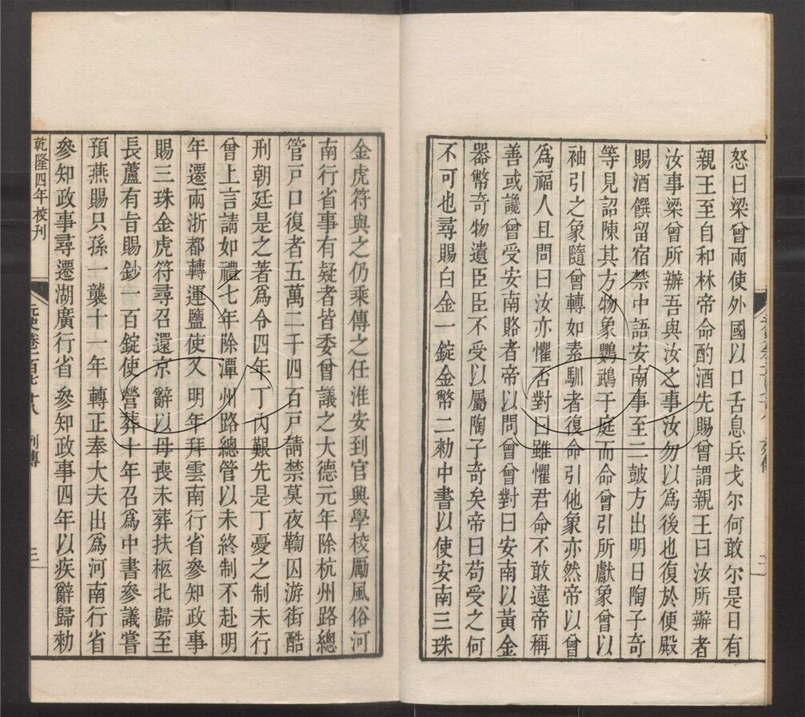 怒曰梁曾兩使外國以口舌息兵戈尔何敢尔是日有
親王至自和林帝命酌酒先賜曾謂親王曰汝所辦者
汝事梁曾所辦吾與汝之事汝勿以爲後也復於便殿
賜酒饌留宿禁中語安南事至二鼓方出明日陶子奇
等見詔陳其方物象鸚鵡于庭而命曾引所獻象曾以
袖引之象隨曾轉如素馴者復命引他象亦然帝以曾
爲福人且問曰汝亦懼否對曰雖懼君命不敢違帝稱
善或讒曾受安南賂者帝以問曾曾對曰安南以黃金
器幣奇物遺臣臣不受以屬陶子奇矣帝曰苟受之何
不可也尋賜白金一錠金幣二勑中書以使安南三珠
金虎符與之仍乘傳之任淮安到官興學校勵風俗河
南行省事有疑者皆委曾議之大德元年除杭州路總
管戸口復者五萬二千四百戸請禁莫夜鞫囚游街酷
刑朝廷是之著爲令四年丁內艱先是丁憂之制未行
曾上言請如禮七年除潭州路總管以未終制不赴明
年遷兩浙都轉運鹽使又明年拜雲南行省參知政事
賜三珠金虎符尋召還京辭以母喪未葬扶柩北歸至
長蘆有旨賜鈔一百錠使營葬十年召爲中書參議嘗
預燕賜只孫一襲十一年轉正奉大夫出爲河南行省
參知政事尋遷湖廣行省參知政事四年以疾辭歸勑
乾隆四年校刊
元史卷一百七十八 列傳
三